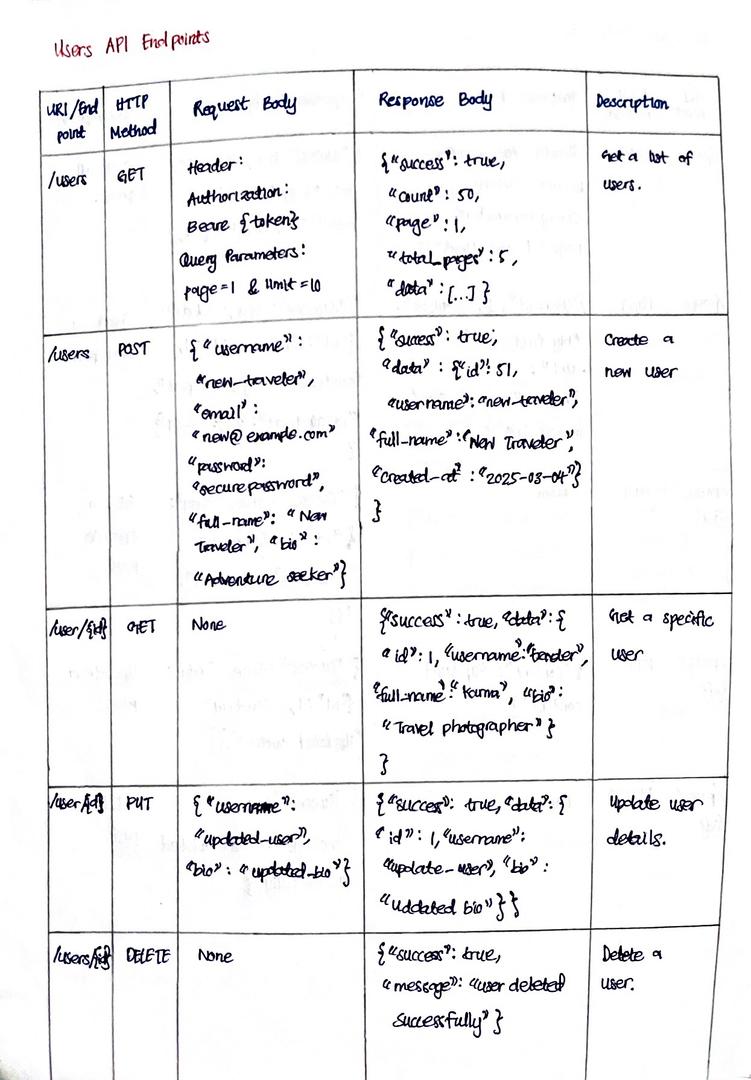 Users API Endpoints
URI/End point
HTTP Method
Request Body
Response Body
Description
/users
GET
Header:
Authorization:
Beare {token}
Query Parameters:
page=1 & limit=10
{"success": true,
"count": 50,
"page": 1,
"total_pages": 5,
"data": [...] }
Get a list of
users.
/users
POST
{ "username":
"new-traveler",
"email":
"new@example.com"
"password":
"securepassword",
"full-name": "New
Traveler", "bio":
"Adventure seeker"}
{"sucess": true,
"data": {"id": 51,
"username": "new-traveler",
"full-name": "New Traveler",
"created-at": "2025-03-04"}
}
Create a
new user
/user/{id}
GET
None
{"success": true, "data": {
"id": 1, "username":
"full_name": "Karna", "bio":
"Travel photographer" }
}
Get a specific
user
/user/{id}
PUT
{ "username":
"updated-user",
"bio": "updated_bio"}
{"success": true, "data": {
"id": 1, "username":
"update-user", "bio":
"uddated bio" } }
update user
details.
/users/{id}
DELETE
None
{"success": true,
"message": "user deleted
successfully" }
Delete a
user.